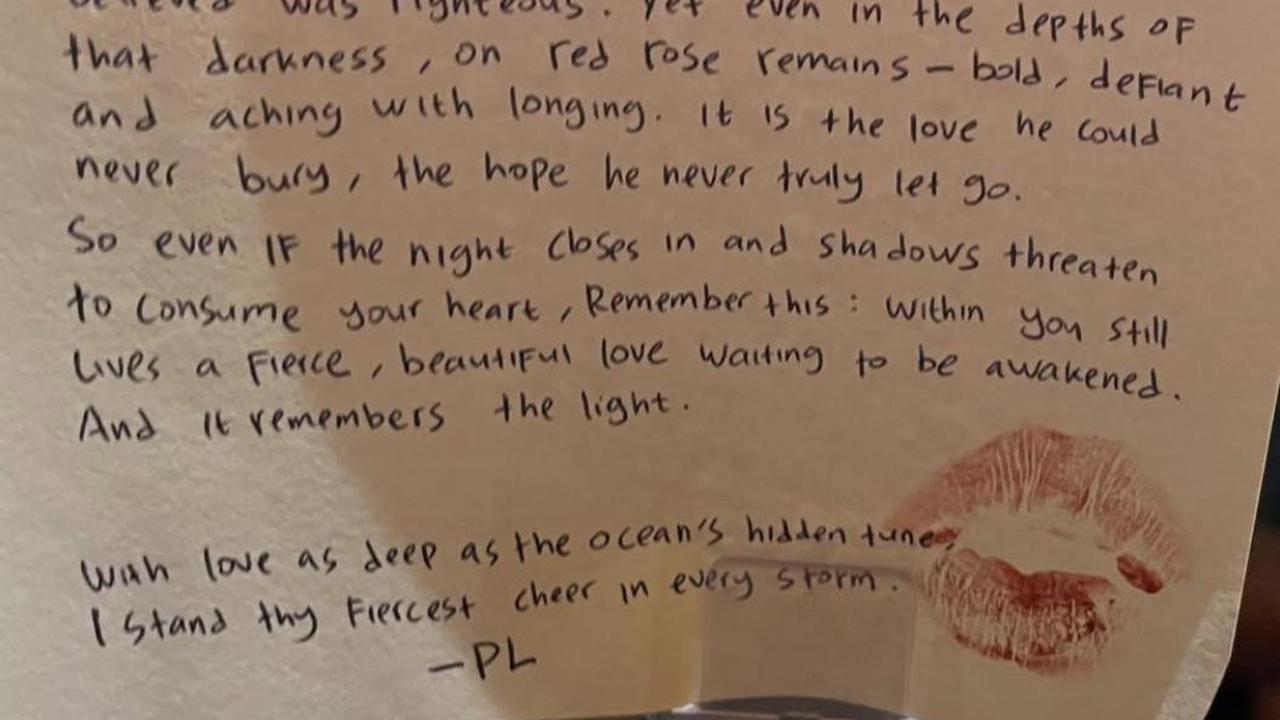 believed was righteous. Yet even in the depths of
that darkness, on red rose remains – bold, defiant
and aching with longing. It is the love he could
never bury, the hope he never truly let go.
So even if the night closes in and shadows threaten
to consume your heart, Remember this: within you still
lives a fierce, beautiful love waiting to be awakened.
And it remembers the light.
With love as deep as the ocean's hidden tune,
I stand thy fiercest cheer in every storm.
–PL